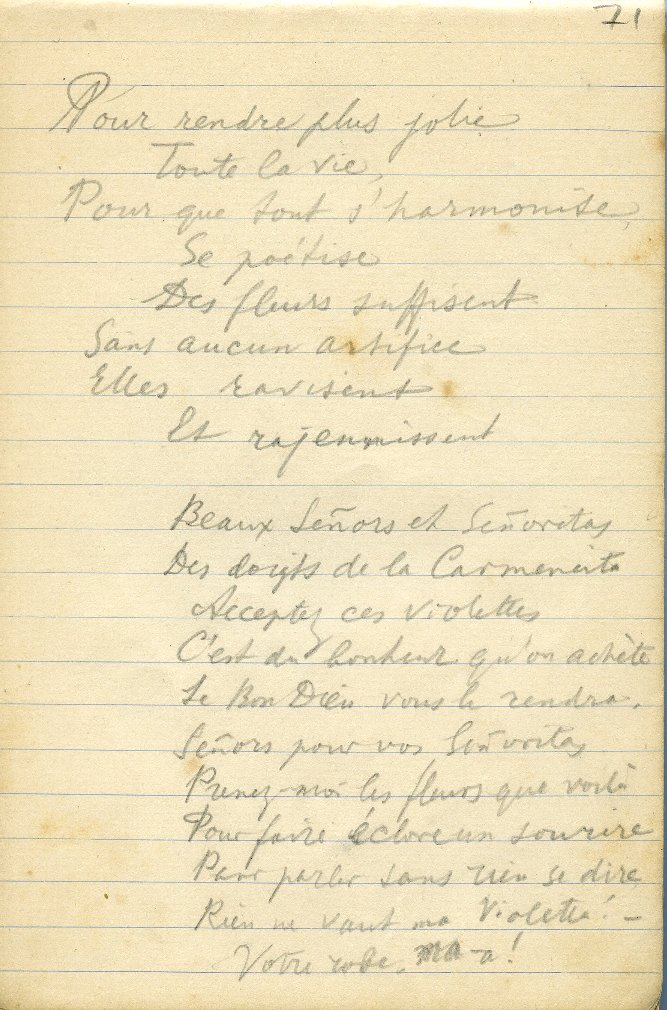 71
Pour rendre plus jolie
Toute la vie,
Pour que tout s'harmonise,
Se poétise
Des fleurs suffisent
Sans aucun artifice
Elles ravisent
Et rajeunissent
Beaux Señors et Señoritas
Des doigts de la Carmencita
Acceptez ces violettes
C'est du bonheur qu'on achète
Le Bon Dieu vous le rendra.
Señors pour vos Señoritas
Prenez-moi les fleurs que voilà
Pour faire éclore un sourire
Pour parler sans rien se dire
Rien ne vaut ma Violetta! -
Votre robe, -a!